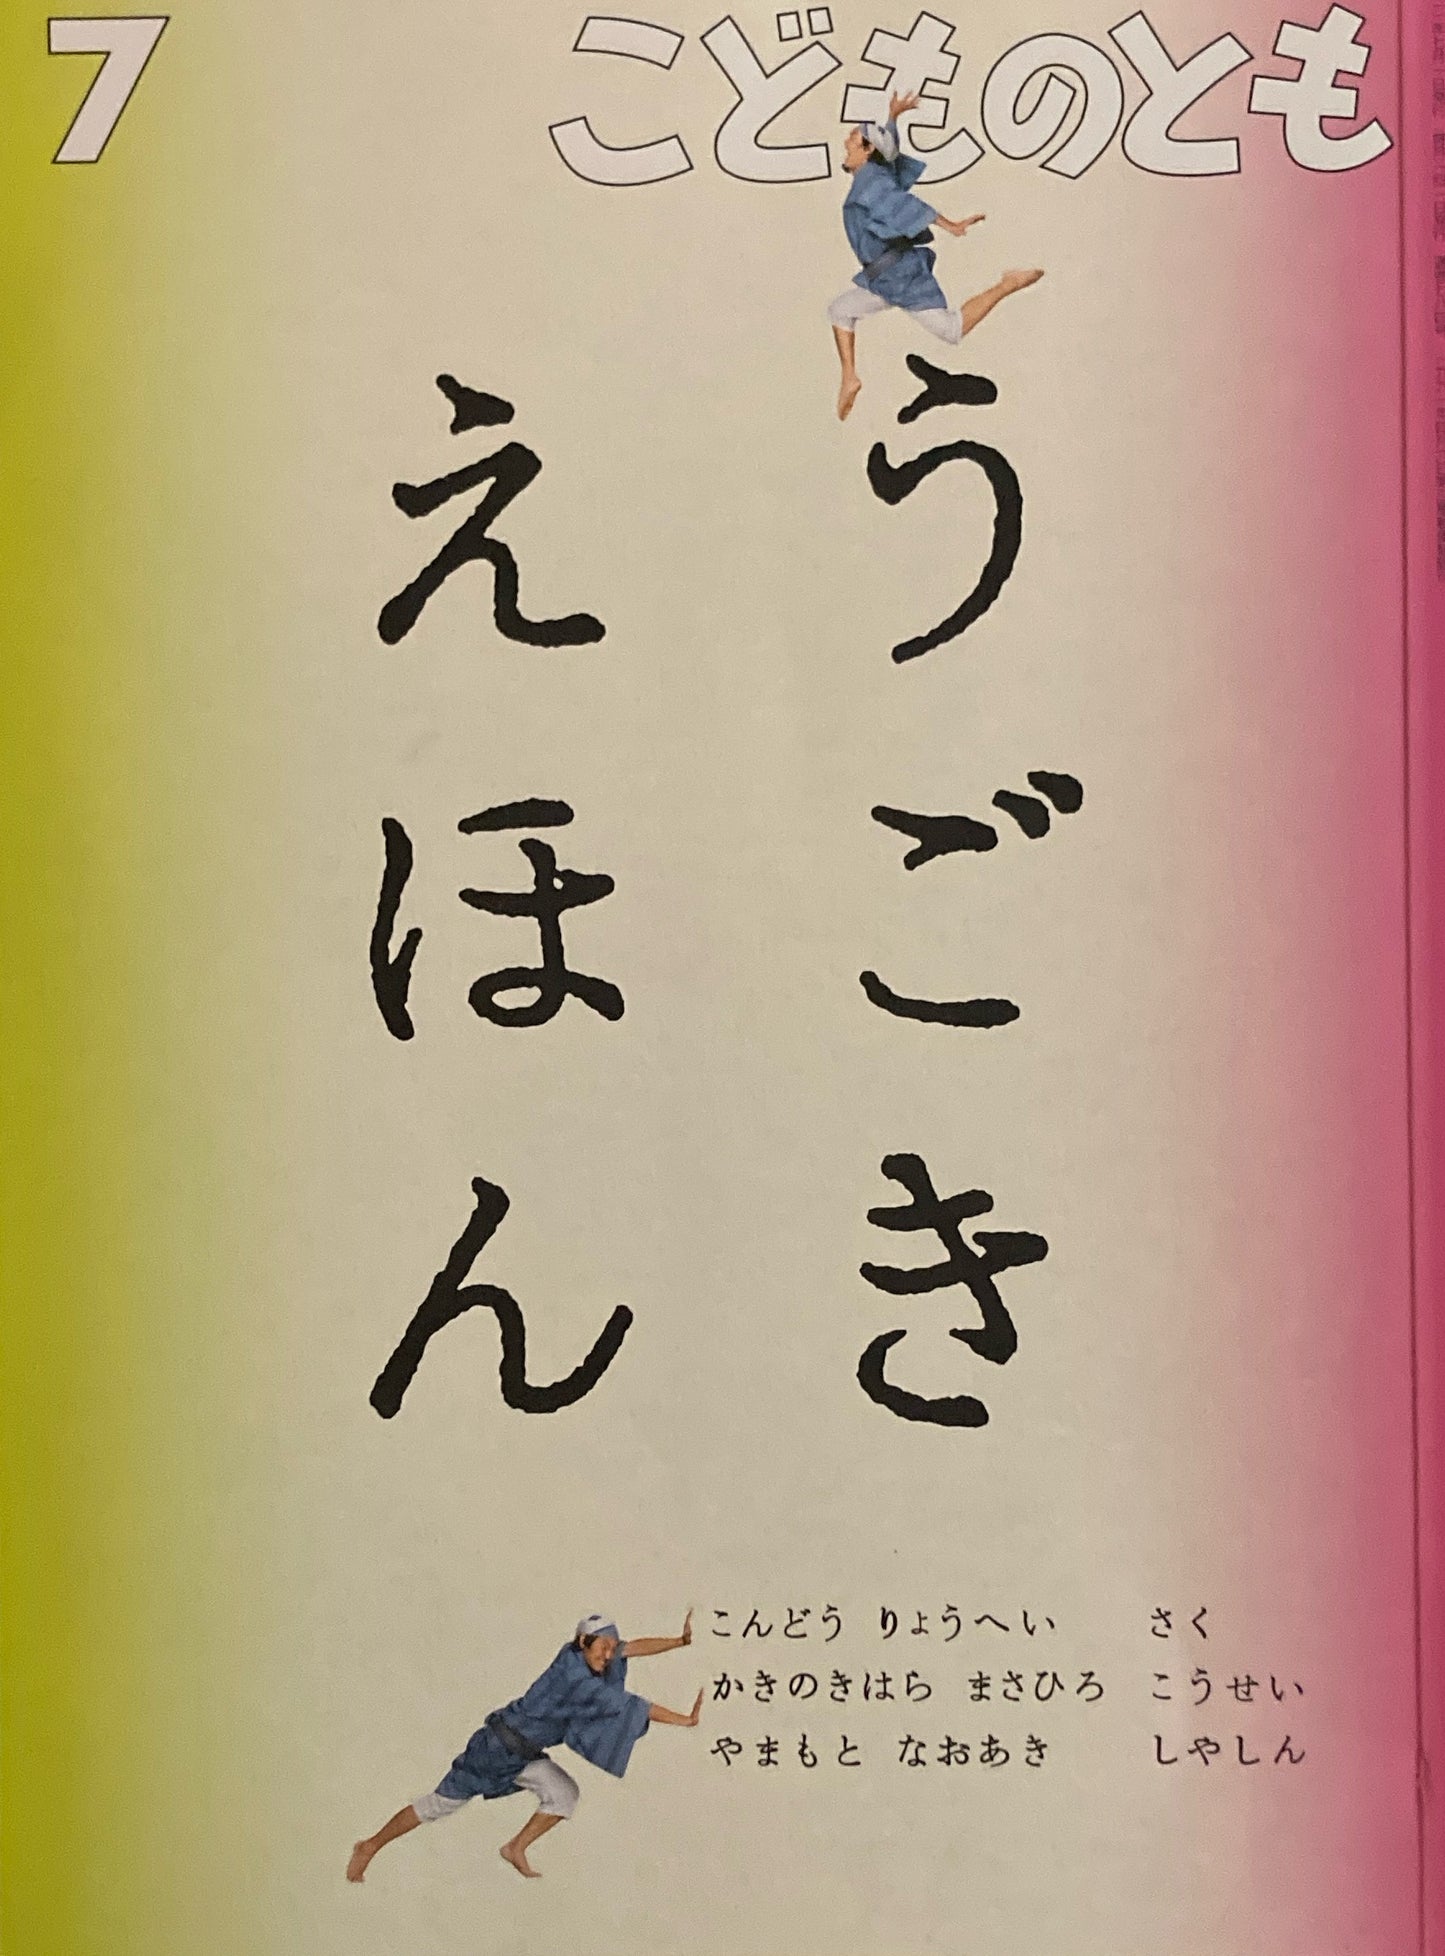 7
こどものとも
うごき
えほん
こんどう りょうへい さく
かきのきはら まさひろ こうせい
やまもと なおあき しゃしん